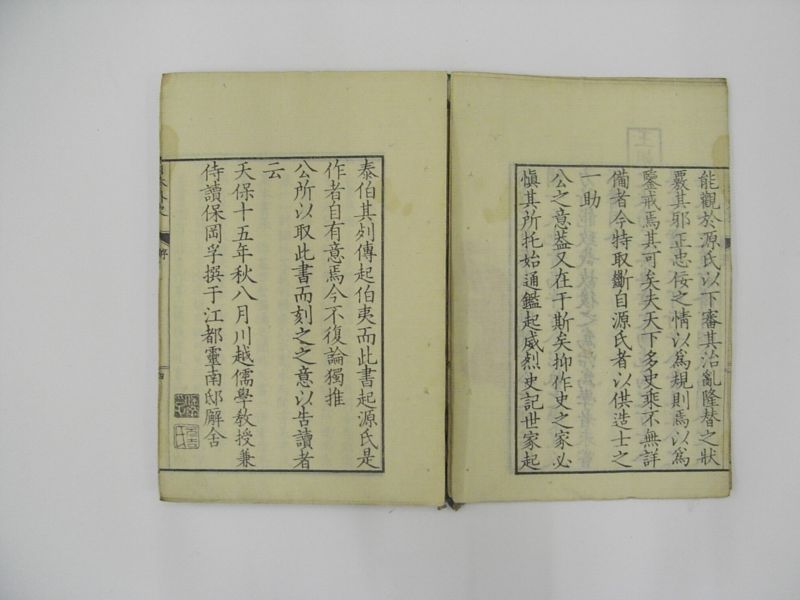 能觀於源氏以下審其治亂隆替之狀
覈其邪正忠佞之情以爲規則焉以爲
鑒戒焉其可矣夫天下多史乘不無詳
備者今特取斷自源氏者以供造士之
一助
公之意葢又在于斯矣抑作史之家必
愼其所托始通鑑起威烈史記世家起
泰伯其列傳起伯夷而此書起源氏是
作者自有意焉今不復論獨推
公所以取此書而刻之之意以告讀者
云
天保十五年秋八月川越儒學教授兼
侍讀保岡孚撰于江都靈南邸廨舍